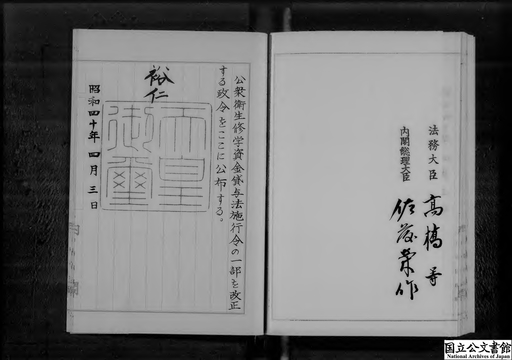 公衆衛生修学資金貸与法施行令の一部を改正
する政令をここに公布する。
裕仁
天皇
御璽
昭和四十年四月三日
内閣総理大臣 佐藤栄作
法務大臣 高橋等
国立公文書館
National Archives of Japan